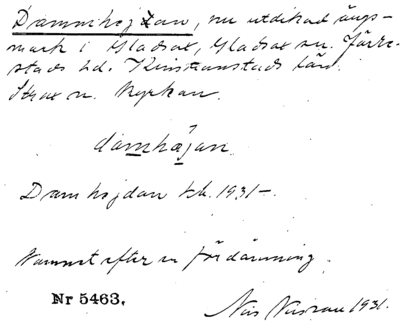 Dammhejdan, nu utdikad ängs-
mark i Gladsax, Gladsax sn. Järre-
stads hd. Kristianstads län.
Strax n. kyrkan.
damhäjan.
Damhejdan tk. 1931-.
Namnet efter en fördämning.
Nr 5463.
1931.